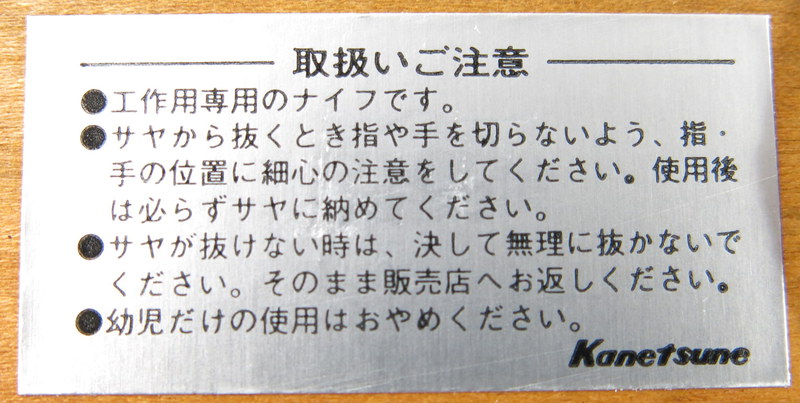 取扱いご注意
●工作用専用のナイフです。
●サヤから抜くとき指や手を切らないよう、指・
手の位置に細心の注意をしてください。使用後
は必らずサヤに納めてください。
●サヤが抜けない時は、決して無理に抜かないで
ください。そのまま販売店へお返しください。
●幼児だけの使用はおやめください。
Kanetsune